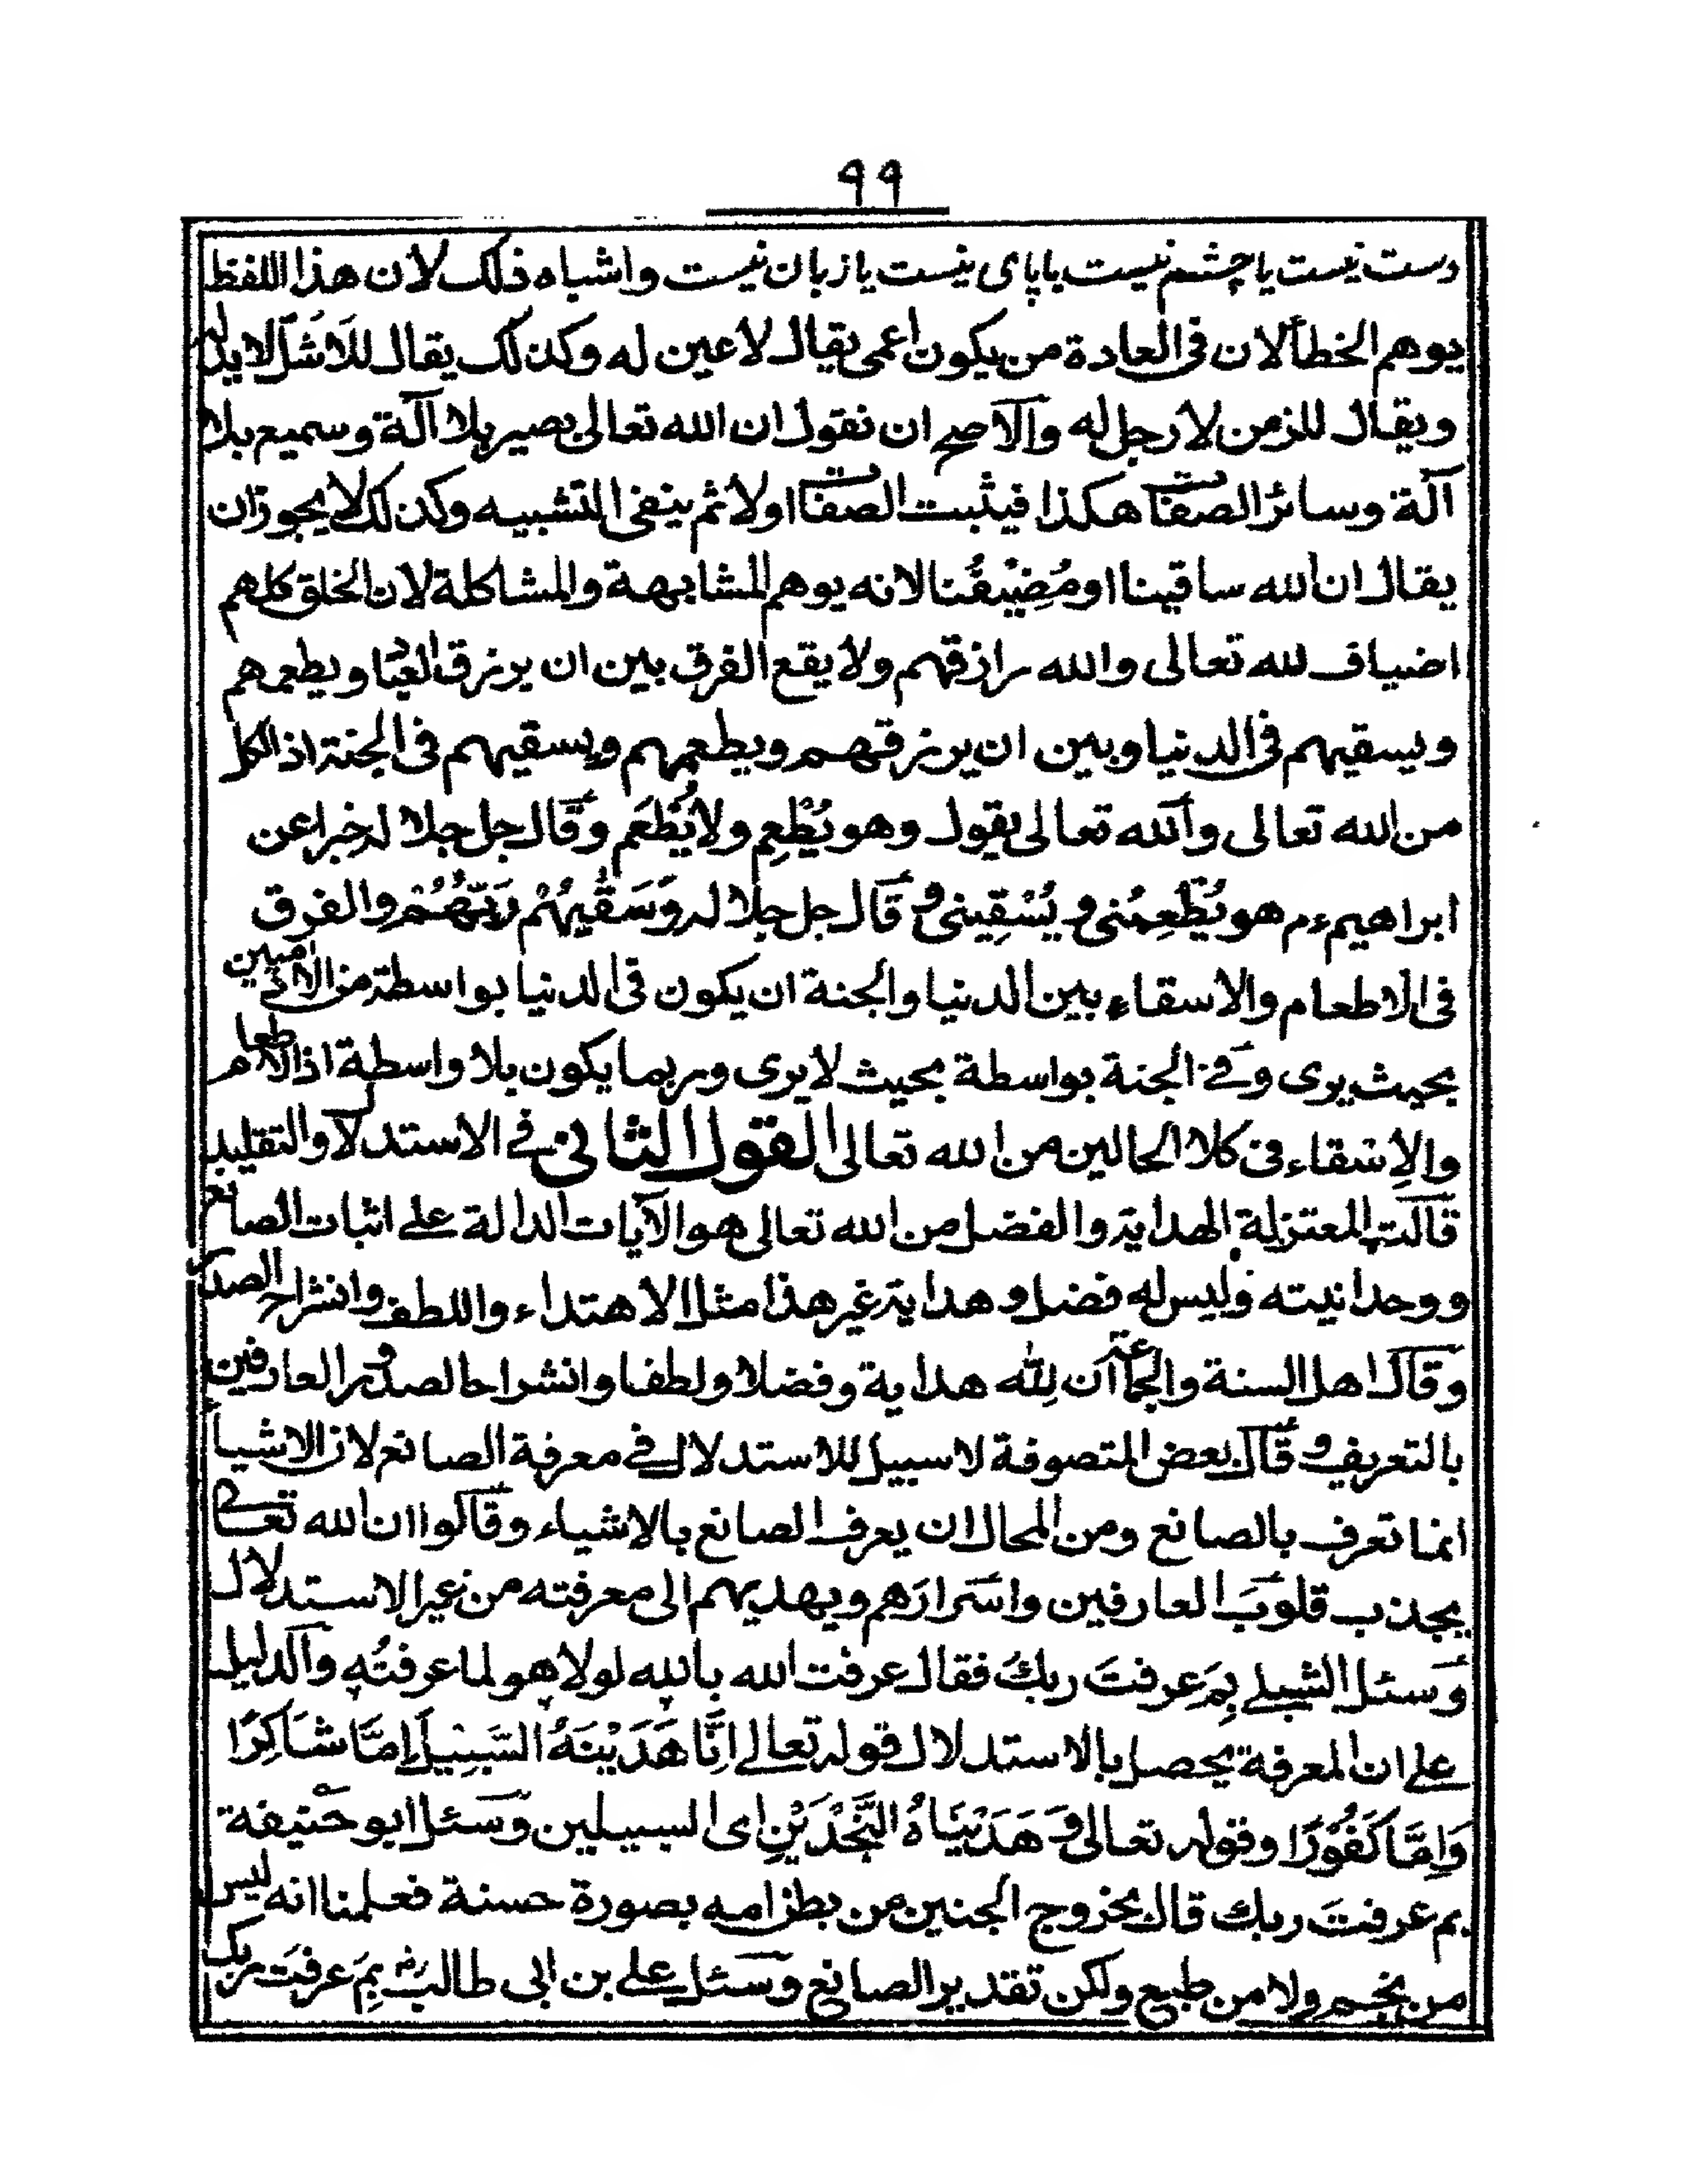 ٩٩
دست نیست یا چشم نیست یا پای نیست یا زبان نیست واشباه ذلک لان هذا اللفظ
یوهم الخطأ لان فی العادة من یکون اعمی یقال لاعین له وکذلک یقال للاشل لاید له
ویقال للزمن لارجل له والاصح ان نقول ان الله تعالی بصیر بلا آلة وسمیع بلا
آلة وسائر الصفات هکذا فیثبت الصفات اولا ثم ینفی التشبیه وکذلک لایجوز ان
یقال ان الله ساقینا او مُضِیْفُنا لانه یوهم المشابهة والمشاکلة لان الخلق کلهم
اضیاف لله تعالی والله رازقهم ولا یقع الفرق بین ان یرزق العباد ویطعمهم
ویسقیهم فی الدنیا وبین ان یرزقهم ویطعمهم ویسقیهم فی الجنة اذ الکل
من الله تعالی والله تعالی یقول وهو یُطْعِم ولا یُطْعَم وقال جل جلاله خبرا عن
ابراهیم ءم هو یُطْعِمُنی و یُسْقِینی و قال جل جلاله وَسَقٰیهُمْ رَبُّهُمْ والفرق
فی الاطعام والاسقاء بین الدنیا والجنة ان یکون فی الدنیا بواسطة من الادمیین
بحیث یری وفی الجنة بواسطة بحیث لایری وربما یکون بلا واسطة اذ الاطعام
والاِسْقاء فی کلا الحالین من الله تعالی القول الثانی فی الاستدلال والتقلید
قالت المعتزلة الهدایة والفضل من الله تعالی هو الآیات الدالة علی اثبات الصانع
ووحدانیته ولیس له فضل وهدایة غیر هذا مثل الاهتداء واللطف وانشراح الصدر
وقال اهل السنة والجماعة ان لله هدایة وفضلا ولطفا وانشراحا لصدور العارفین
بالتعریف و قال بعض المتصوفة لاسبیل للاستدلال فی معرفة الصانع لان الاشیاء
انما تعرف بالصانع ومن المحال ان یعرف الصانع بالاشیاء وقالوا ان الله تعالی
یجذب قلوبَ العارفین واسرارَهم ویهدیهم الی معرفته من غیر الاستدلال
وسئل الشبلی بِمَ عرفتَ ربكَ فقال عرفت الله بالله لولا هو لما عرفتُه والدلیل
علی ان المعرفة یحصل بالاستدلال قوله تعالی اِنَّا هَدَیْنٰهُ السَّبِیْلَ اِمَّا شَاکِرًا
وَاِمَّا کَفُوْرًا وقوله تعالی وَ هَدَیْنَاهُ النَّجْدَیْنِ ای السبیلین وسئل ابو حنیفة
بم عرفتَ ربك قال بخروج الجنین من بطن امه بصورة حسنة فعلمنا انه لیس
من نجم ولا من طبع ولکن تقدیر الصانع وسئل علی بن ابی طالب رض بِمَ عرفتَ ربک